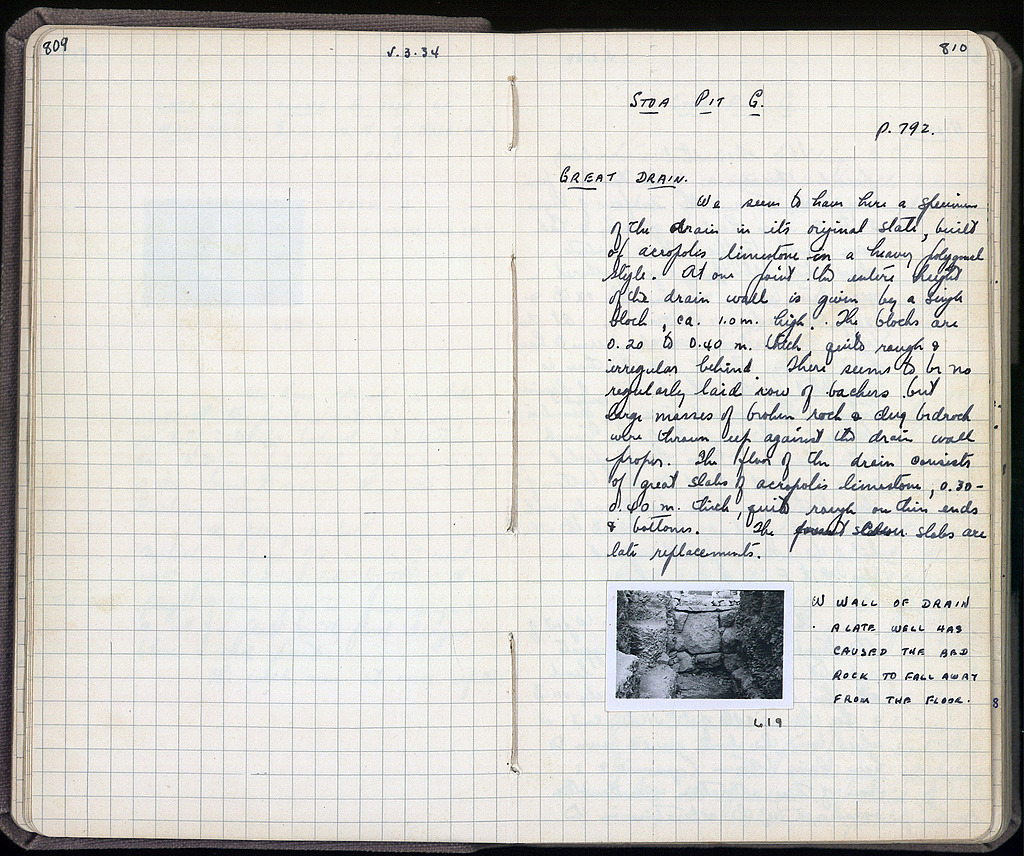 809
5.3.34
810
STOA PIT G.
p. 792.
GREAT DRAIN.
We seem to have here a specimen
of the drain in its original state, built
of acropolis limestone in a heavy polygonal
style. At one point the entire height
of the drain wall is given by a single
block, ca. 1.0 m. high. The blocks are
0.20 to 0.40 m. thick, quite rough &
irregular behind. There seems to be no
regularly laid row of backers but
large masses of broken rock & dug bedrock
were thrown up against the drain wall
proper. The floor of the drain consists
of great slabs of acropolis limestone, 0.30-
0.40 m. thick, quite rough on their ends
& bottoms. The slabs are
late replacements.
W WALL OF DRAIN
A LATE WELL HAS
CAUSED THE BED
ROCK TO FALL AWAY
FROM THE FLOOR.
8
619